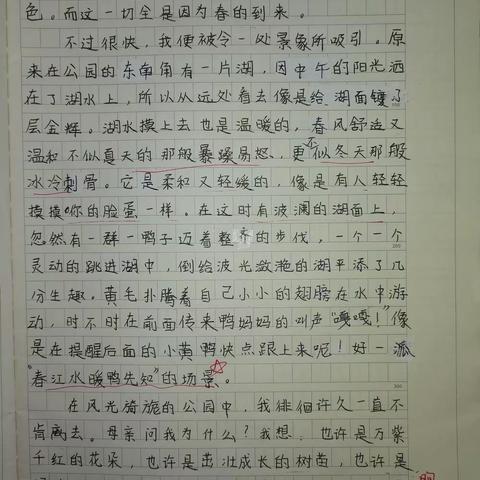 色。而这一切全是因为春的到来。
不过很快，我便被令一处景象所吸引。原
来在公园的东南角有一片湖，因中午的阳光洒
在了湖水上，所以从远处看去像是给湖面镀了
层金辉。湖水摸上去也是温暖的，春风舒适又
温和不似夏天的那般暴躁易怒，更不似冬天那般
冰冷刺骨。它是柔和又轻缓的，像是有人轻轻
摸摸你的脸蛋一样。在这时有波澜的湖面上，
忽然有一群一鸭子迈着整齐的步伐，一个一个
灵动的跳进湖中，倒给波光敛滟的湖平添了几
分生趣。黄毛扑腾着自己小小的翅膀在水中游
动，时不时在前面传来鸭妈妈的叫声“嘎嘎！”像
是在提醒后面的小黄鸭快点跟上来呢！好一派
“春江水暖鸭先知”的场景。
300
在风光旖旎的公园中，我徘徊许久一直不
肯离去。母亲问我为什么？我想，也许是万紫
千红的花朵，也许是茁壮成长的树苗，也许是